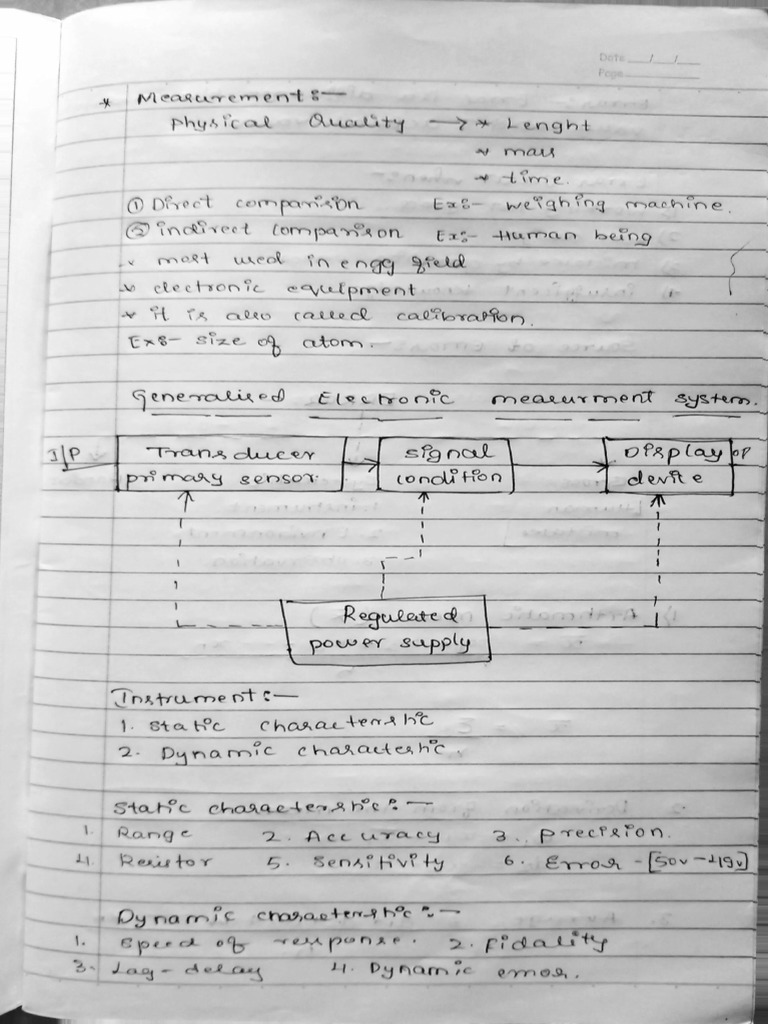 Date __/__/__
Page
* Measurement :-
Physical Quality → * Lenght
* mass
* time.
① Direct comparision Ex:- weighing machine.
② indirect comparison Ex:- Human being
* most used in engg field
* electronic equipment
* it is also called calibration.
Ex:- size of atom.
Generalised Electronic measurment system.
I/P Transducer primary sensor. → signal condition → Display device OP
Regulated power supply
Instrument :-
1. Static characteristic
2. Dynamic characteristic.
Static characteristic :-
1. Range 2. Accuracy 3. precision.
4. Resistor 5. Sensitivity 6. Error - [50v - 49v]
Dynamic characteristic :-
1. Speed of response. 2. Fidality
3. Lag - delay 4. Dynamic error.